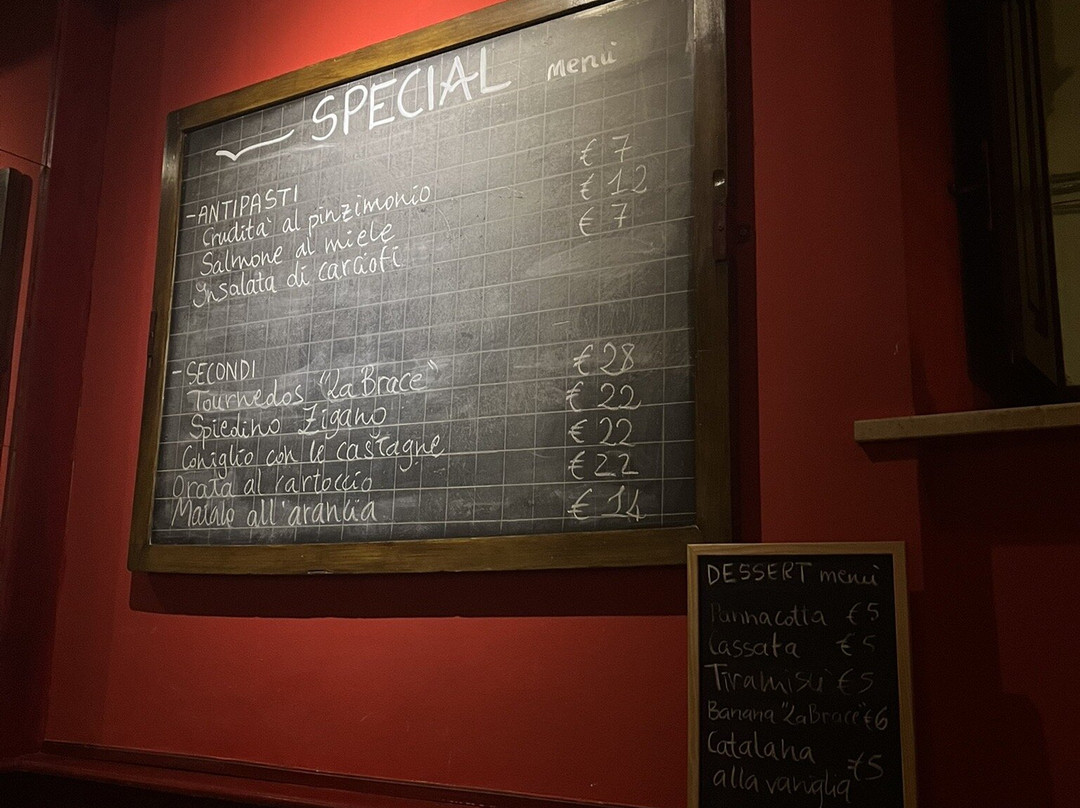 SPECIAL menù
-ANTIPASTI
Crudità al pinzimonio € 7
Salmone al miele € 12
Insalata di carciofi € 7
-SECONDI
Tournedos "La Brace" € 28
Spiedino Zigano € 22
Coniglio con le castagne € 22
Orata al cartoccio € 22
Maiale all'arancia € 14
DESSERT menù
Pannacotta € 5
Cassata € 5
Tiramisù € 5
Banana "La Brace" € 6
Catalana
alla vaniglia € 5